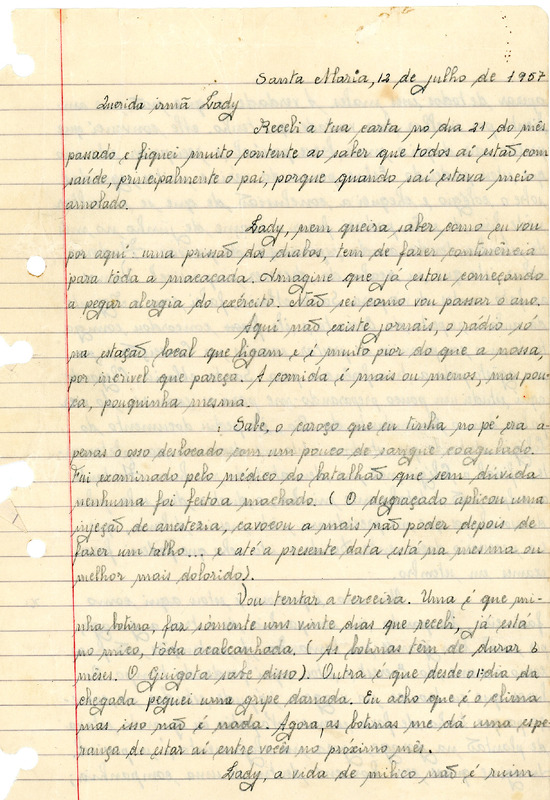 Santa Maria, 12 de julho de 1957
Querida irmã Lady
Recebi a tua carta no dia 21 do mês
passado e fiquei muito contente ao saber que todos aí estão com
saúde, principalmente o pai, porque quando saí estava meio
amolado.
Lady, nem queira saber como eu vou
por aqui: uma prissão dos diabos, tem de fazer continência
para tôda a macacada. Imagine que já estou começando
a pegar alergia do exército. Não sei como vou passar o ano.
Aqui não existe jornais, o rádio só
na estação local que ligam e é muito pior do que a nossa,
por incrivel que pareça. A comida é mais ou menos, mas pou-
ca, pouquinha mesma.
Sabe, o caroço que eu tinha no pé era a-
penas o osso deslocado com um pouco de sangue coagulado.
Fui examinado pelo médico do batalhão que sem dúvida
nenhuma foi feito a machado. (O desgraçado aplicou uma
injeção de anestezia, cavocou a mais não poder depois de
fazer um talho... e até a presente data está na mesma ou
melhor mais dolorido).
Vou tentar a terceira. Uma é que mi-
nha botina, faz sòmente uns vinte dias que recebi, já está
no mico, tôda acalcanhada. (As botinas têm de durar 6
mêses. O Guigota sabe disso). Outra é que desde o 1º dia da
chegada peguei uma gripe danada. Eu acho que é o clima
mas isso não é nada. Agora, as botinas me dá uma espe-
rança de estar aí entre vocês no próximo mês.
Lady, a vida de milico não é ruim